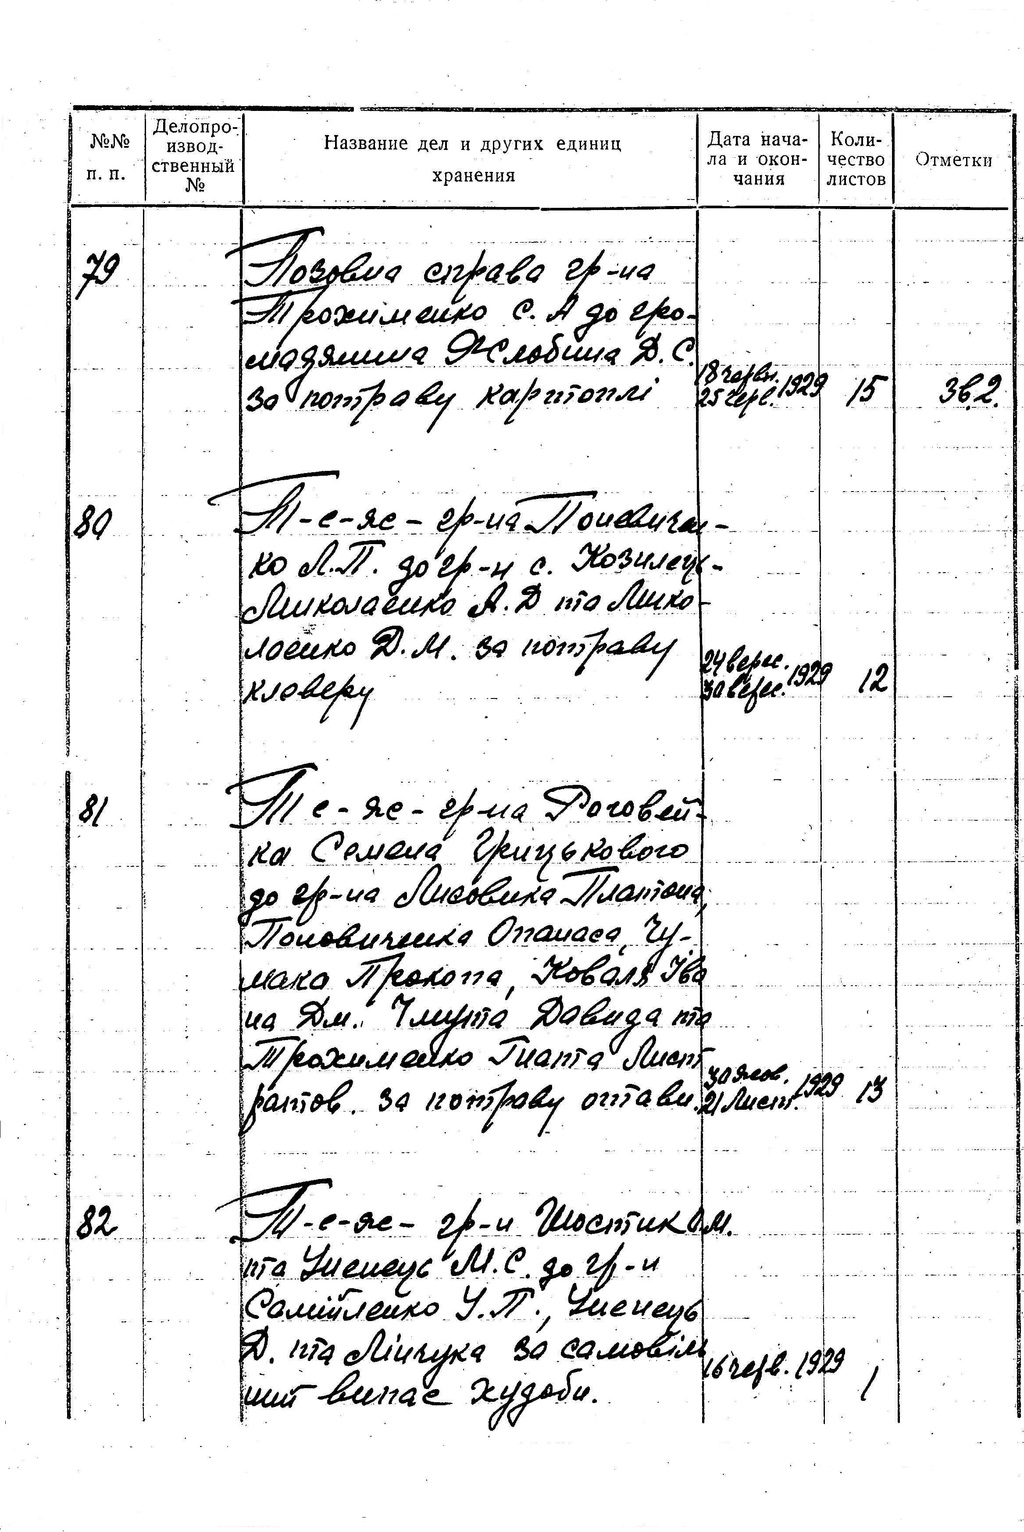 №№ п. п.
Делопро-
извод-
ственный
№
Название дел и других единиц
хранения
Дата нача-
ла и окон-
чания
Коли-
чество
листов
Отметки
79
Позовна справа гр-на
Трохименко С. А до гро-
мадянина Жлобина Д. С.
за потраву картоплі
18 червн.
25 черв. 1929
15
Зв.2.
80
Т-е-ж - гр-на
ко Л.П. до гр-н с. Козилець-
Миколаенко А. Д та Мико-
лаенко Д. М. за потраву
клаверу
24 верес.
30 верес. 1929
12
81
Т е - ж - гр-на Роговей-
ка Семена Грицькового
до гр-на Лисовика Платона,
Поповиченка Опанаса, Чу-
мака Прокопа, Коваля Іва
на Дм. Чмута Давида та
Трохименко Гната Лист
ратов. за потраву отави.
30 жов.
21 Лист. 1929
13
82
Т-е-ж - гр-н Шостик О.М.
та М.С. до гр-н
Самійленко У. П.,
Д. та Мінчука за самовіль
ний випас худоби.
16 черв. 1929
1